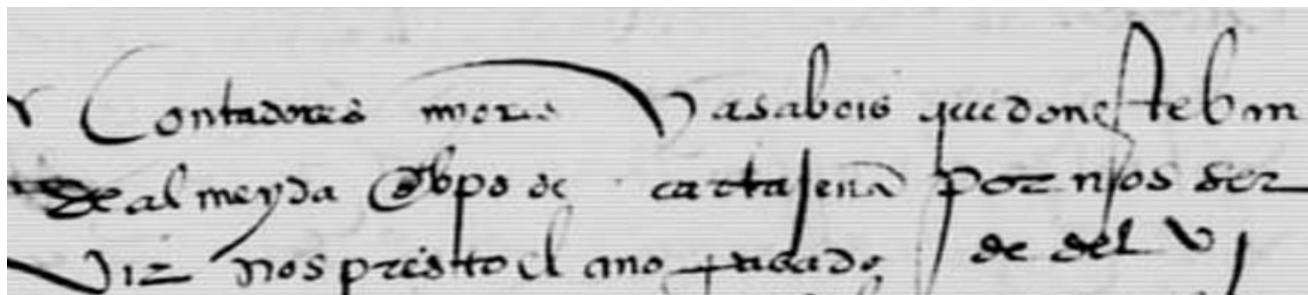 Contadores mores ya sabeis que don esteban
de almeyda obpo de cartajena por nos ser
viz nos presto el ano pasado de del vj